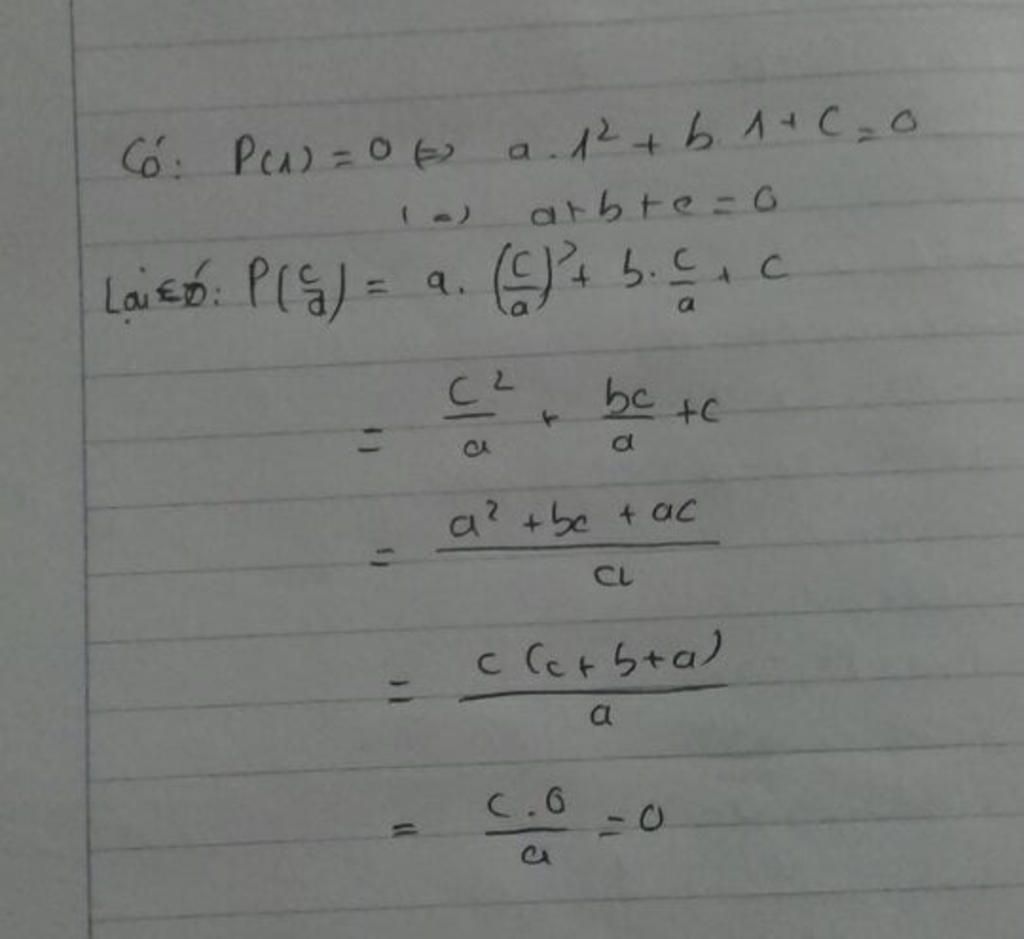 Có: P(1) = 0 (=) a . 1² + b . 1 + C = 0
(=) a + b + c = 0
Lại có: P(c/a) = a . (c/a)² + b . c/a + c
= c²/a + bc/a + c
= (a² + bc + ac)/a
= c(c + b + a)/a
= c . 0/a = 0